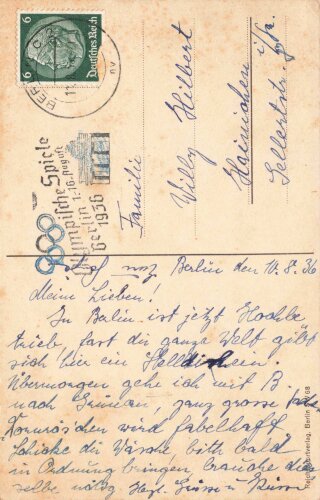 6 6
Deutsches Reich
BERLIN
Olympische Spiele
Berlin
1.-16. August
1936
Familie
Willy Hilbert
Hainichen i/Sa.
Gellertstr.
noch Berlin den 10.8.36
Meine Lieben!
In Berlin ist jetzt Hochbe
trieb, fast die ganze Welt gibt
sich hier ein Stelldichein.
Übermorgen gehe ich mit B.
nach Grünau, ganz grosse Sache
wird fabelhaft
Schicke die Wäsche, bitte bald
in Ordnung bringen, brauche die
selbe nötig. Herzl. Grüsse u. Küsse
Berlin